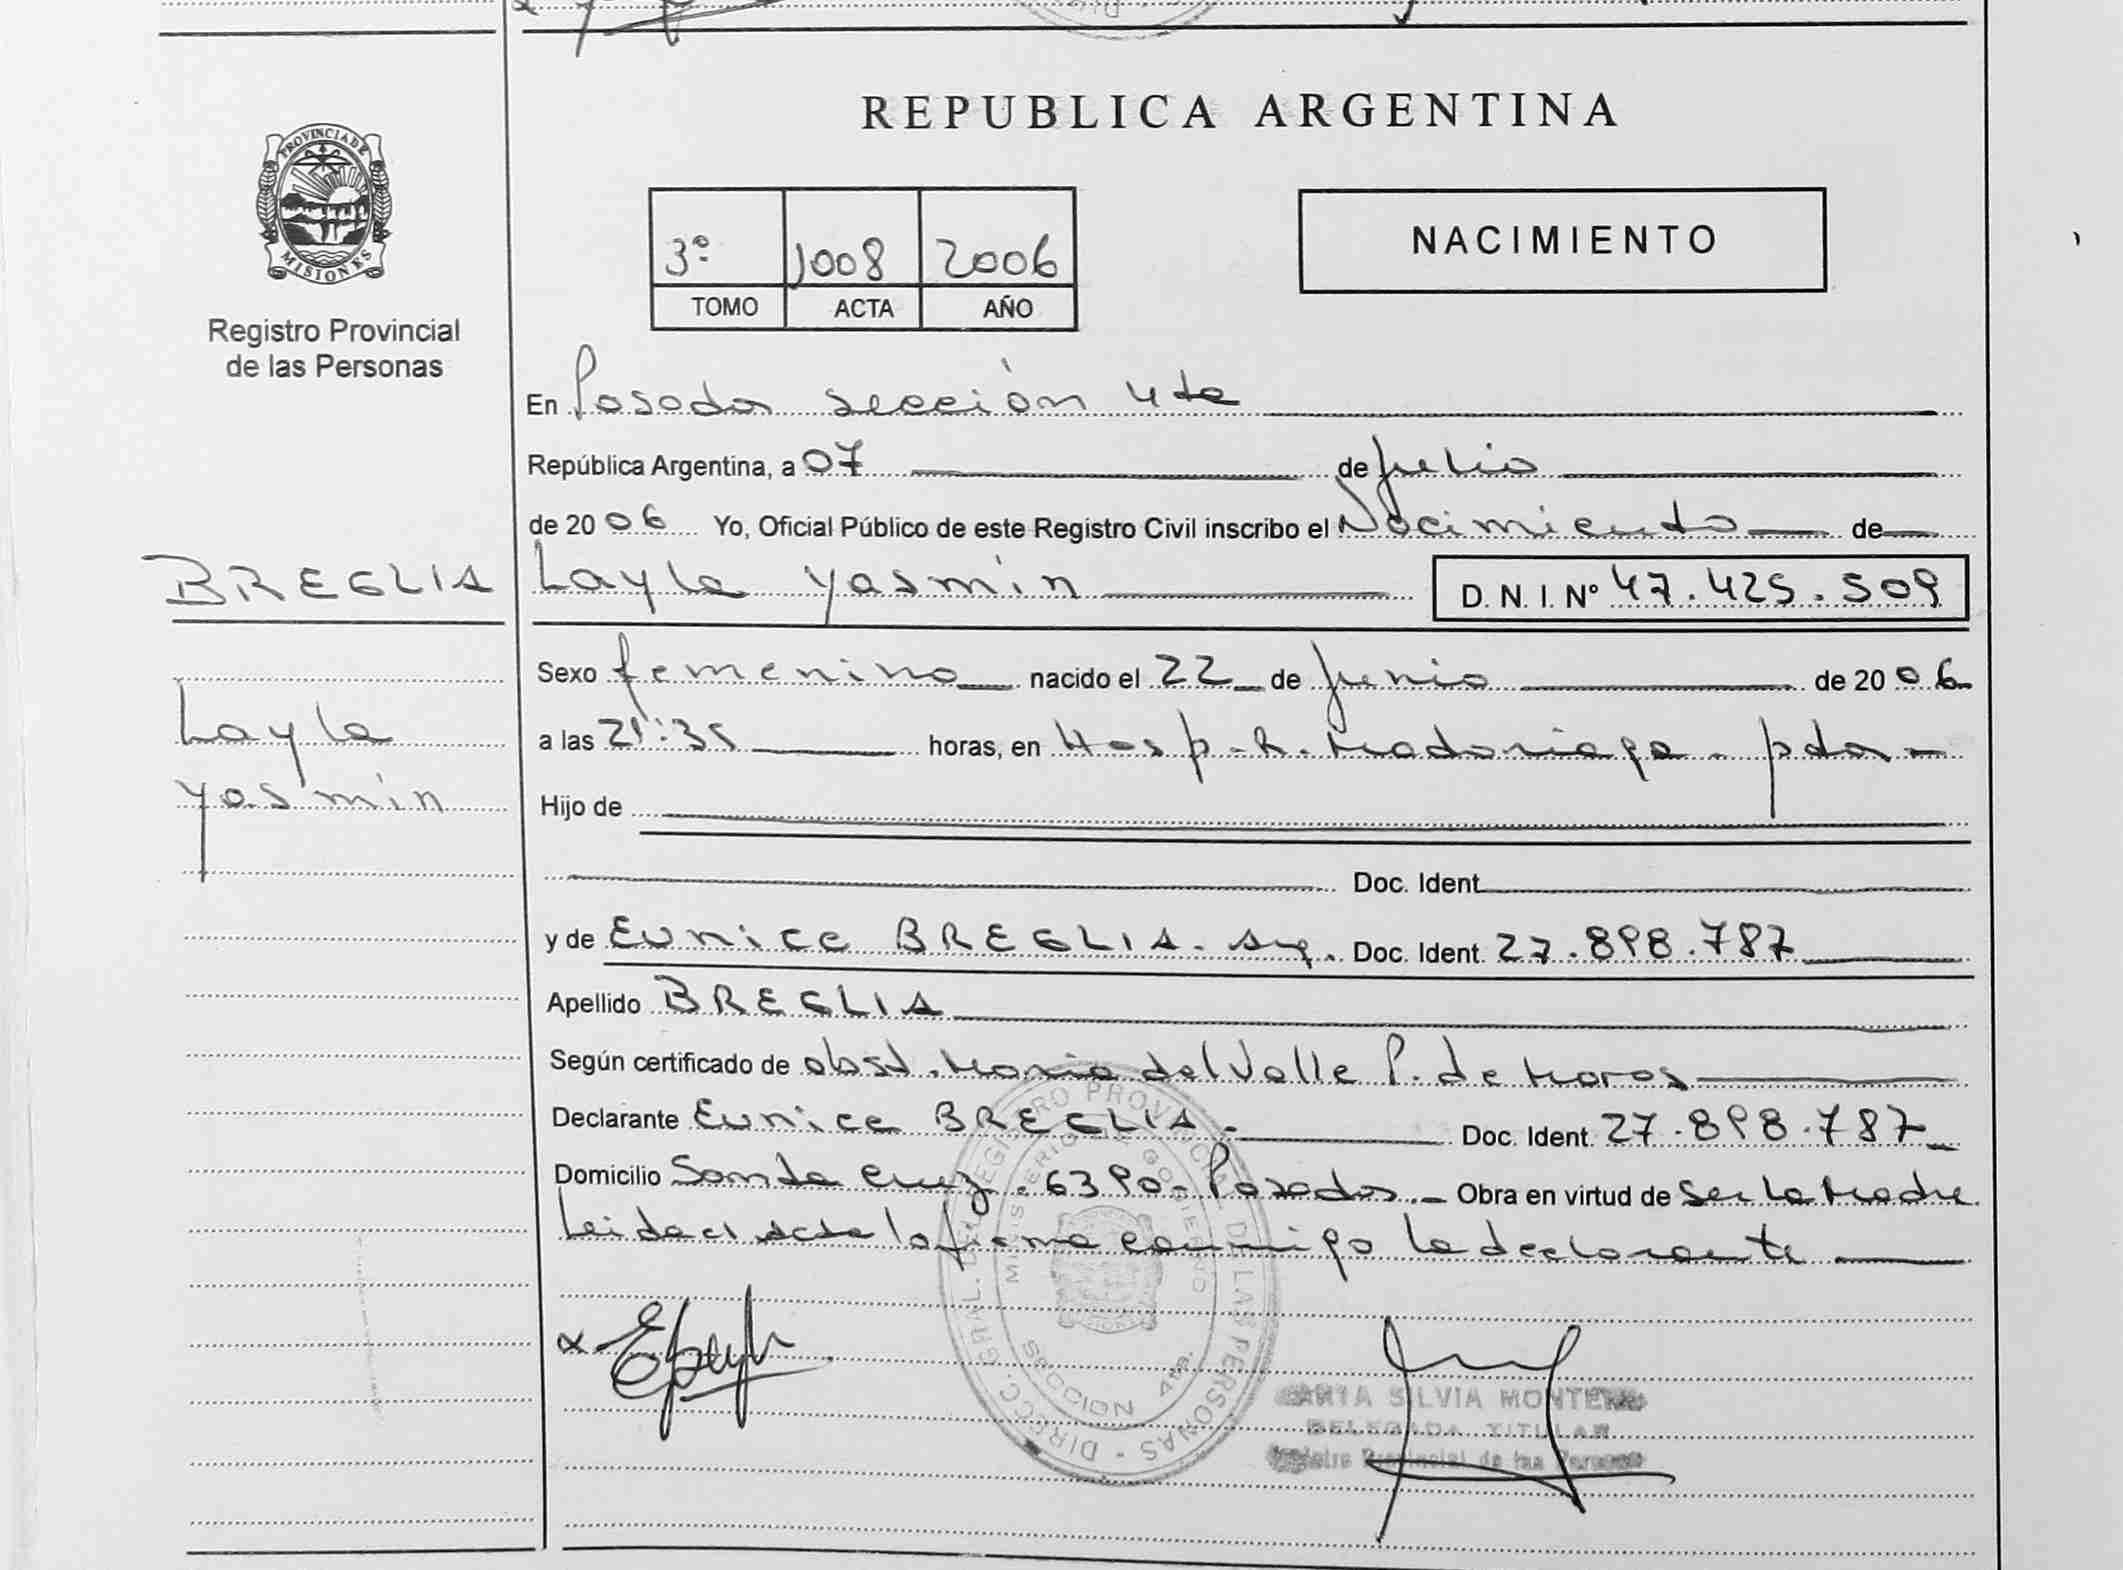 PROVINCIA DE
MISIONES
Registro Provincial
de las Personas
REPUBLICA ARGENTINA
3º 1008 2006
TOMO ACTA AÑO
NACIMIENTO
En Posadas sección 4ta
República Argentina, a 07 de julio
de 2006 Yo, Oficial Público de este Registro Civil inscribo el Nacimiento de
BREGLIA
Layla Yasmín
D. N. I. Nº 47.425.509
Layla
Yasmín
Sexo femenino nacido el 22 de junio de 2006
a las 21:35 horas, en Hosp. R. Madariaga - pdas -
Hijo de
Doc. Ident.
y de Eunice BREGLIA. arg. Doc. Ident. 27.898.787
Apellido BREGLIA
Según certificado de obst. María del Valle P. de Moros
Declarante Eunice BREGLIA. Doc. Ident. 27.898.787
Domicilio Santa Cruz. 6390. Posadas. Obra en virtud de ser la Madre
Leida el acta la firma conmigo la declarante
DIRECC. GRAL. DEL REGISTRO PROVINCIAL DE LAS PERSONAS
MINISTERIO DE GOBIERNO
SECCION 4ta.
SILVIA
DELEGADA TITULAR
Provincial de las Personas